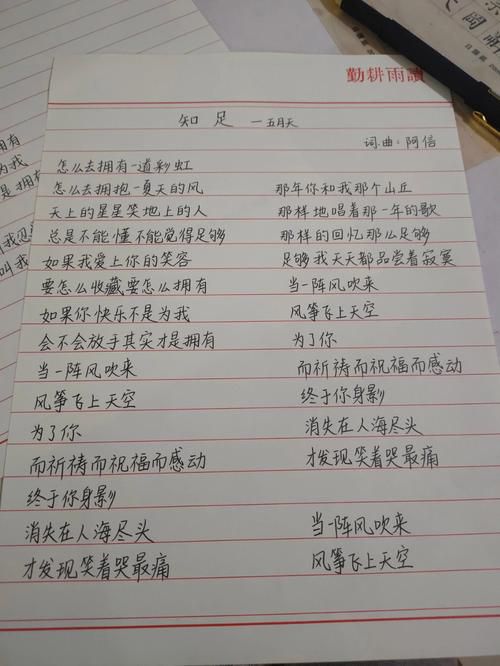 勤耕雨讀
知足 一五月天
词.曲:阿信
怎么去拥有一道彩虹
怎么去拥抱一夏天的风
天上的星星笑地上的人
总是不能懂不能觉得足够
如果我爱上你的笑容
要怎么收藏要怎么拥有
如果你快乐不是为我
会不会放手其实才是拥有
当一阵风吹来
风筝飞上天空
为了你
而祈祷而祝福而感动
终于你身影
消失在人海尽头
才发现笑着哭最痛
那年你和我那个山丘
那样地唱着那一年的歌
那样的回忆那么足够
足够我天天都品尝着寂寞
当一阵风吹来
风筝飞上天空
为了你
而祈祷而祝福而感动
终于你身影
消失在人海尽头
才发现笑着哭最痛
当一阵风吹来
风筝飞上天空